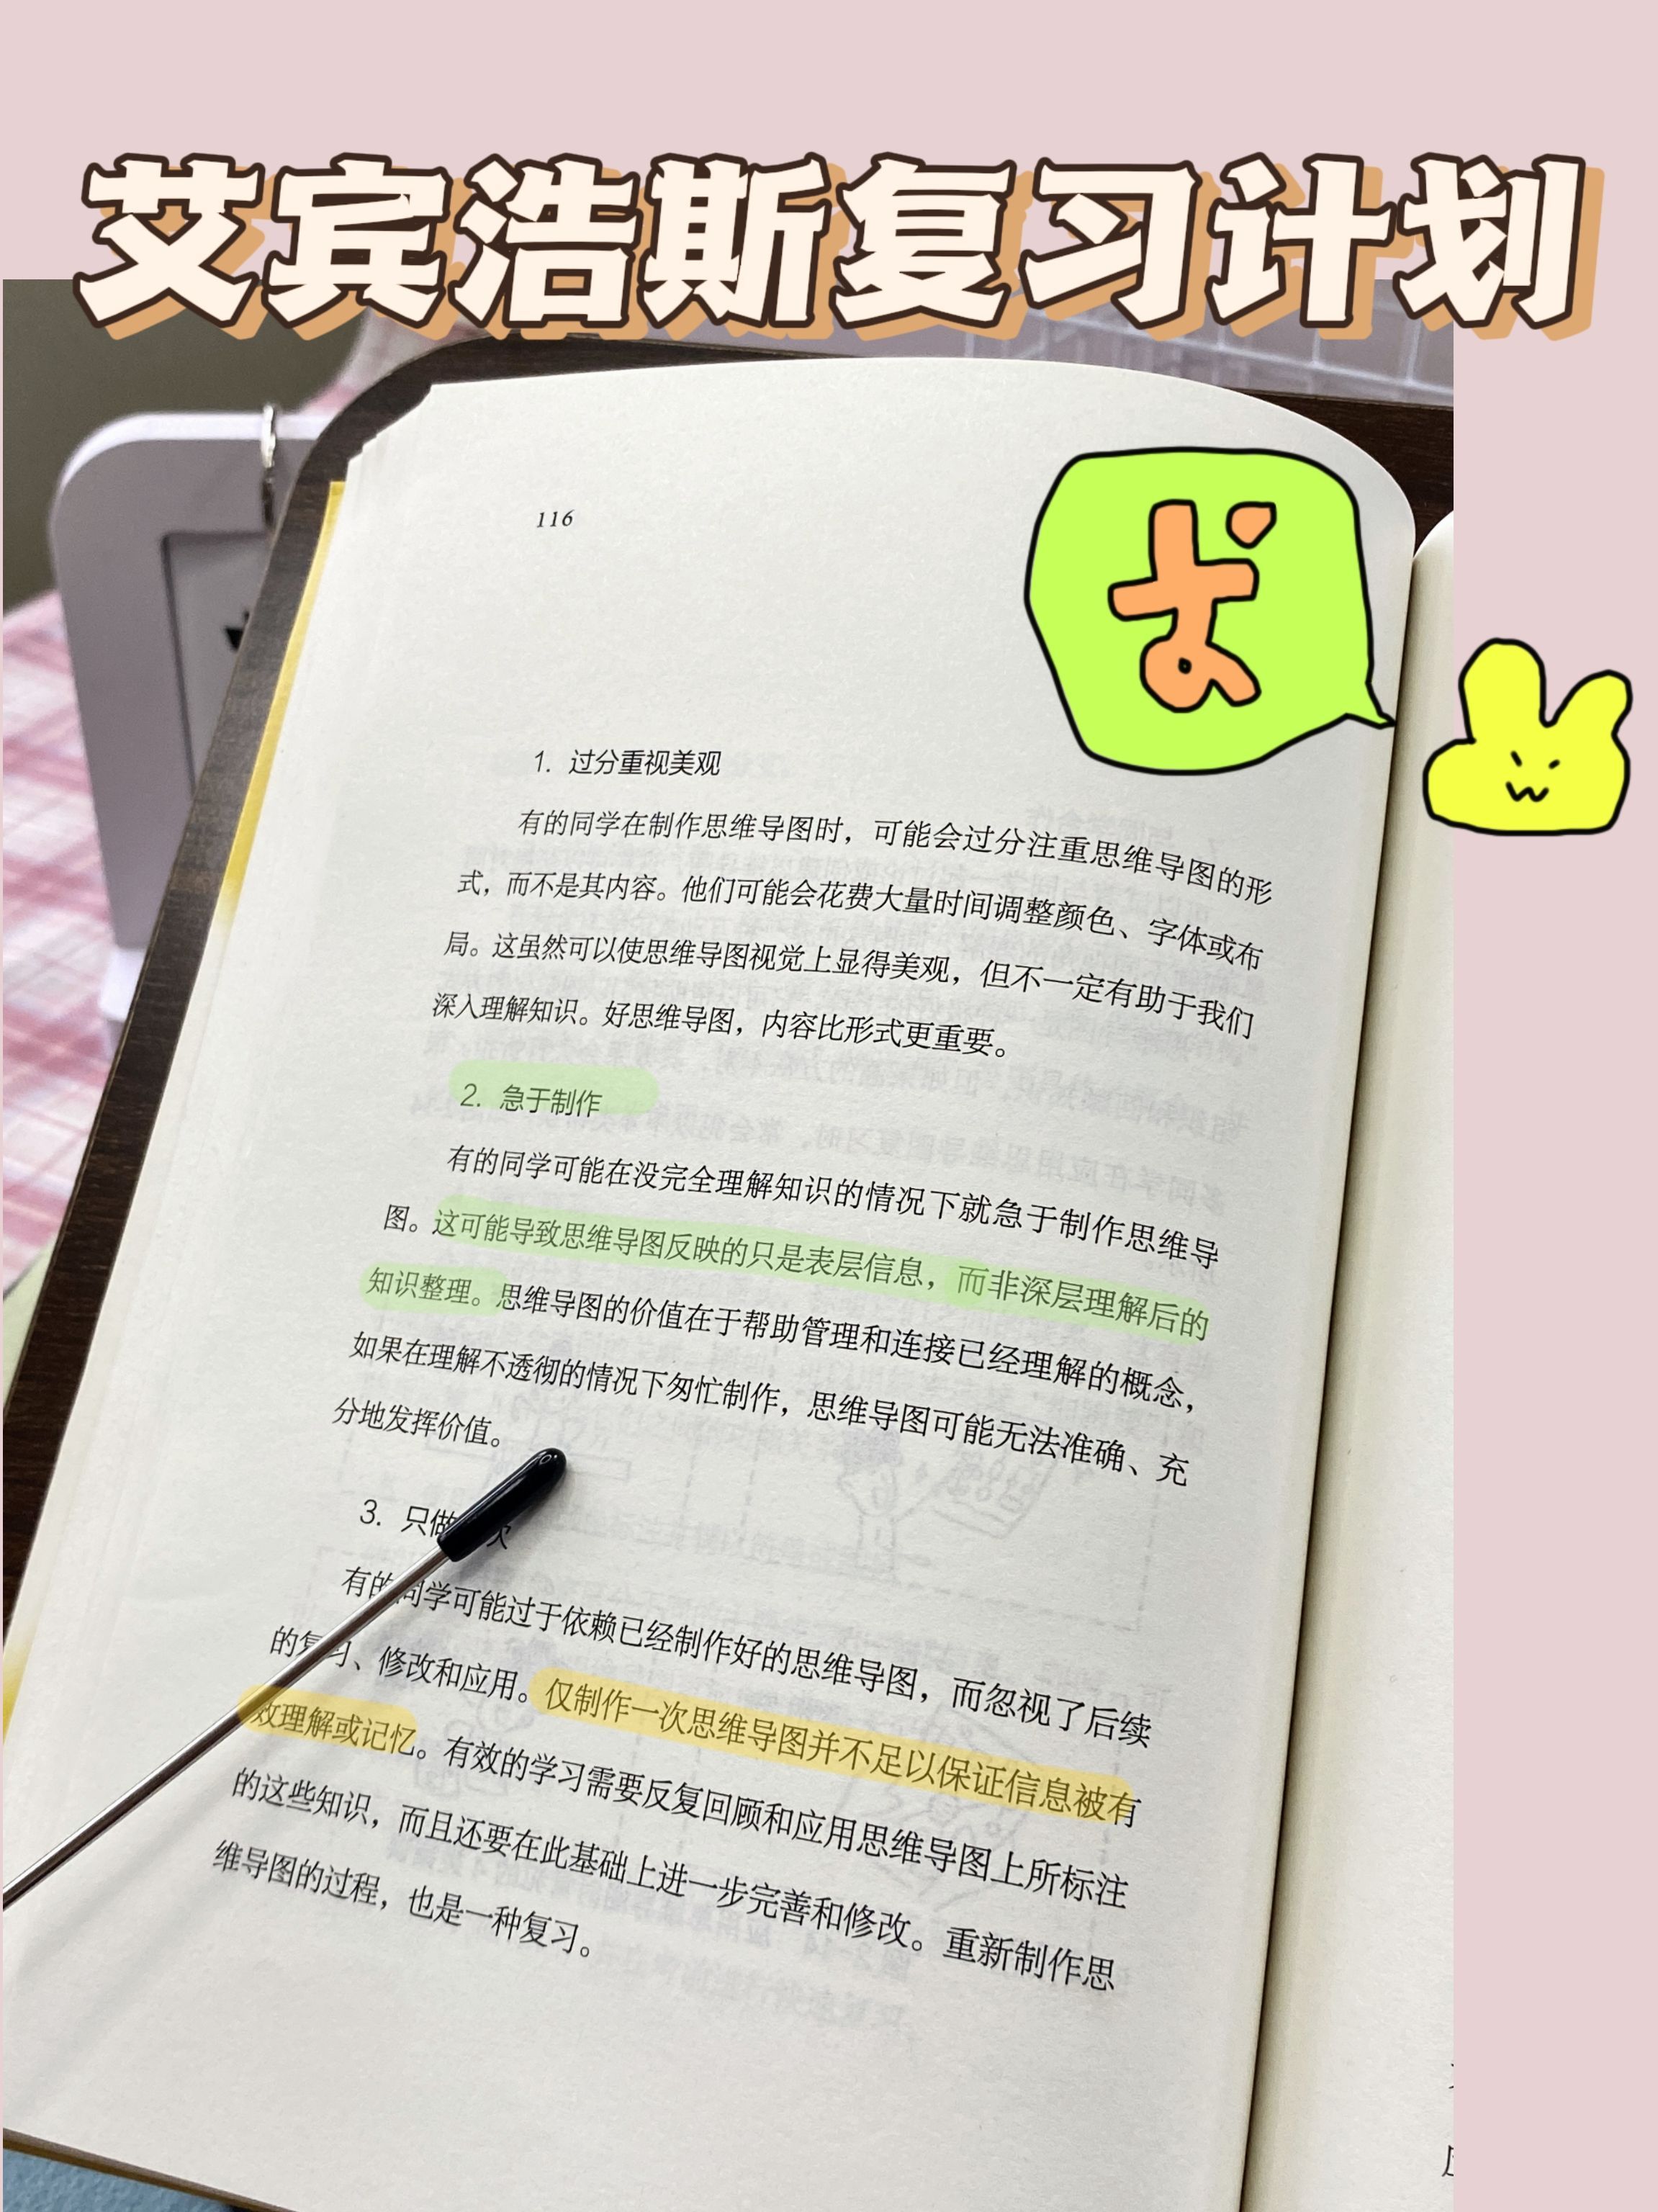 艾宾浩斯复习计划
116
1. 过分重视美观
有的同学在制作思维导图时，可能会过分注重思维导图的形
式，而不是其内容。他们可能会花费大量时间调整颜色、字体或布
局。这虽然可以使思维导图视觉上显得美观，但不一定有助于我们
深入理解知识。好思维导图，内容比形式更重要。
2. 急于制作
有的同学可能在没完全理解知识的情况下就急于制作思维导
图。这可能导致思维导图反映的只是表层信息，而非深层理解后的
知识整理。思维导图的价值在于帮助管理和连接已经理解的概念，
如果在理解不透彻的情况下匆忙制作，思维导图可能无法准确、充
分地发挥价值。
3. 只做 次
有的同学可能过于依赖已经制作好的思维导图，而忽视了后续
的复习、修改和应用。仅制作一次思维导图并不足以保证信息被有
效理解或记忆。有效的学习需要反复回顾和应用思维导图上所标注
的这些知识，而且还要在此基础上进一步完善和修改。重新制作思
维导图的过程，也是一种复习。